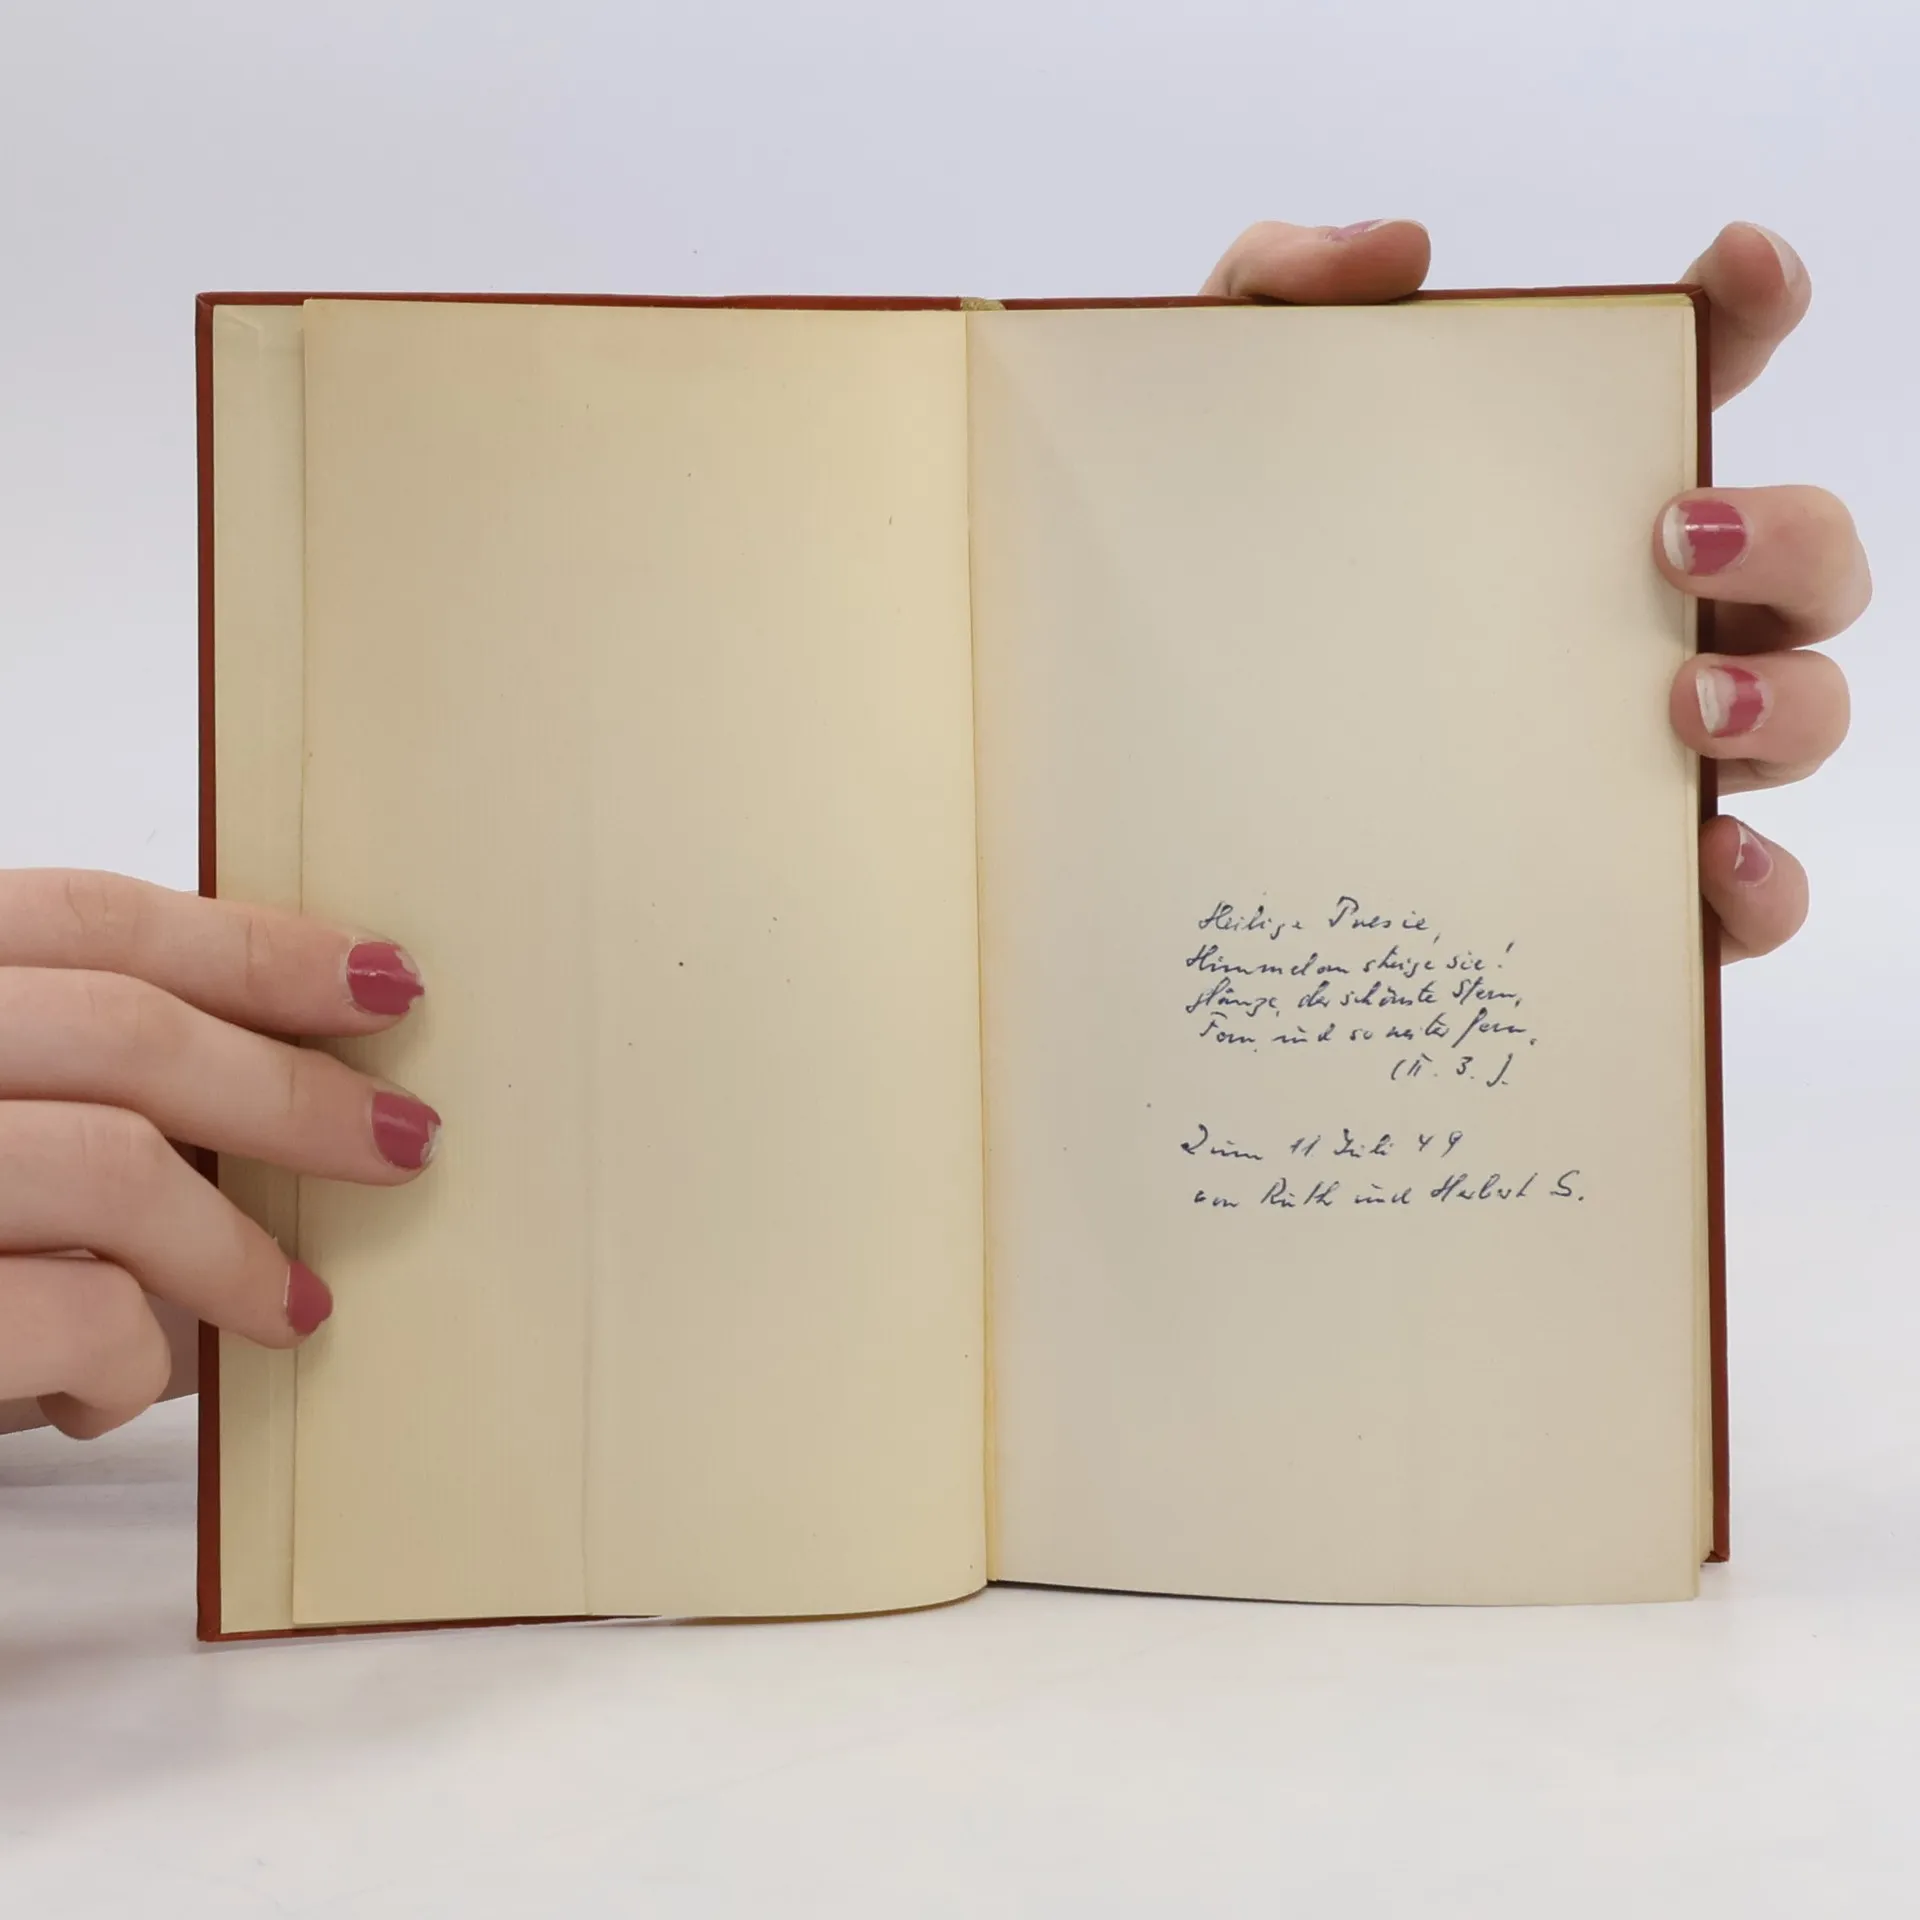 Heilige Poesie,
Himmelan steige sie!
glänze, der schönste Stern,
Fern, und so weiter fern,
(II. 3.).
Zum 11 Juli 49
von Ruth und Herbert S.